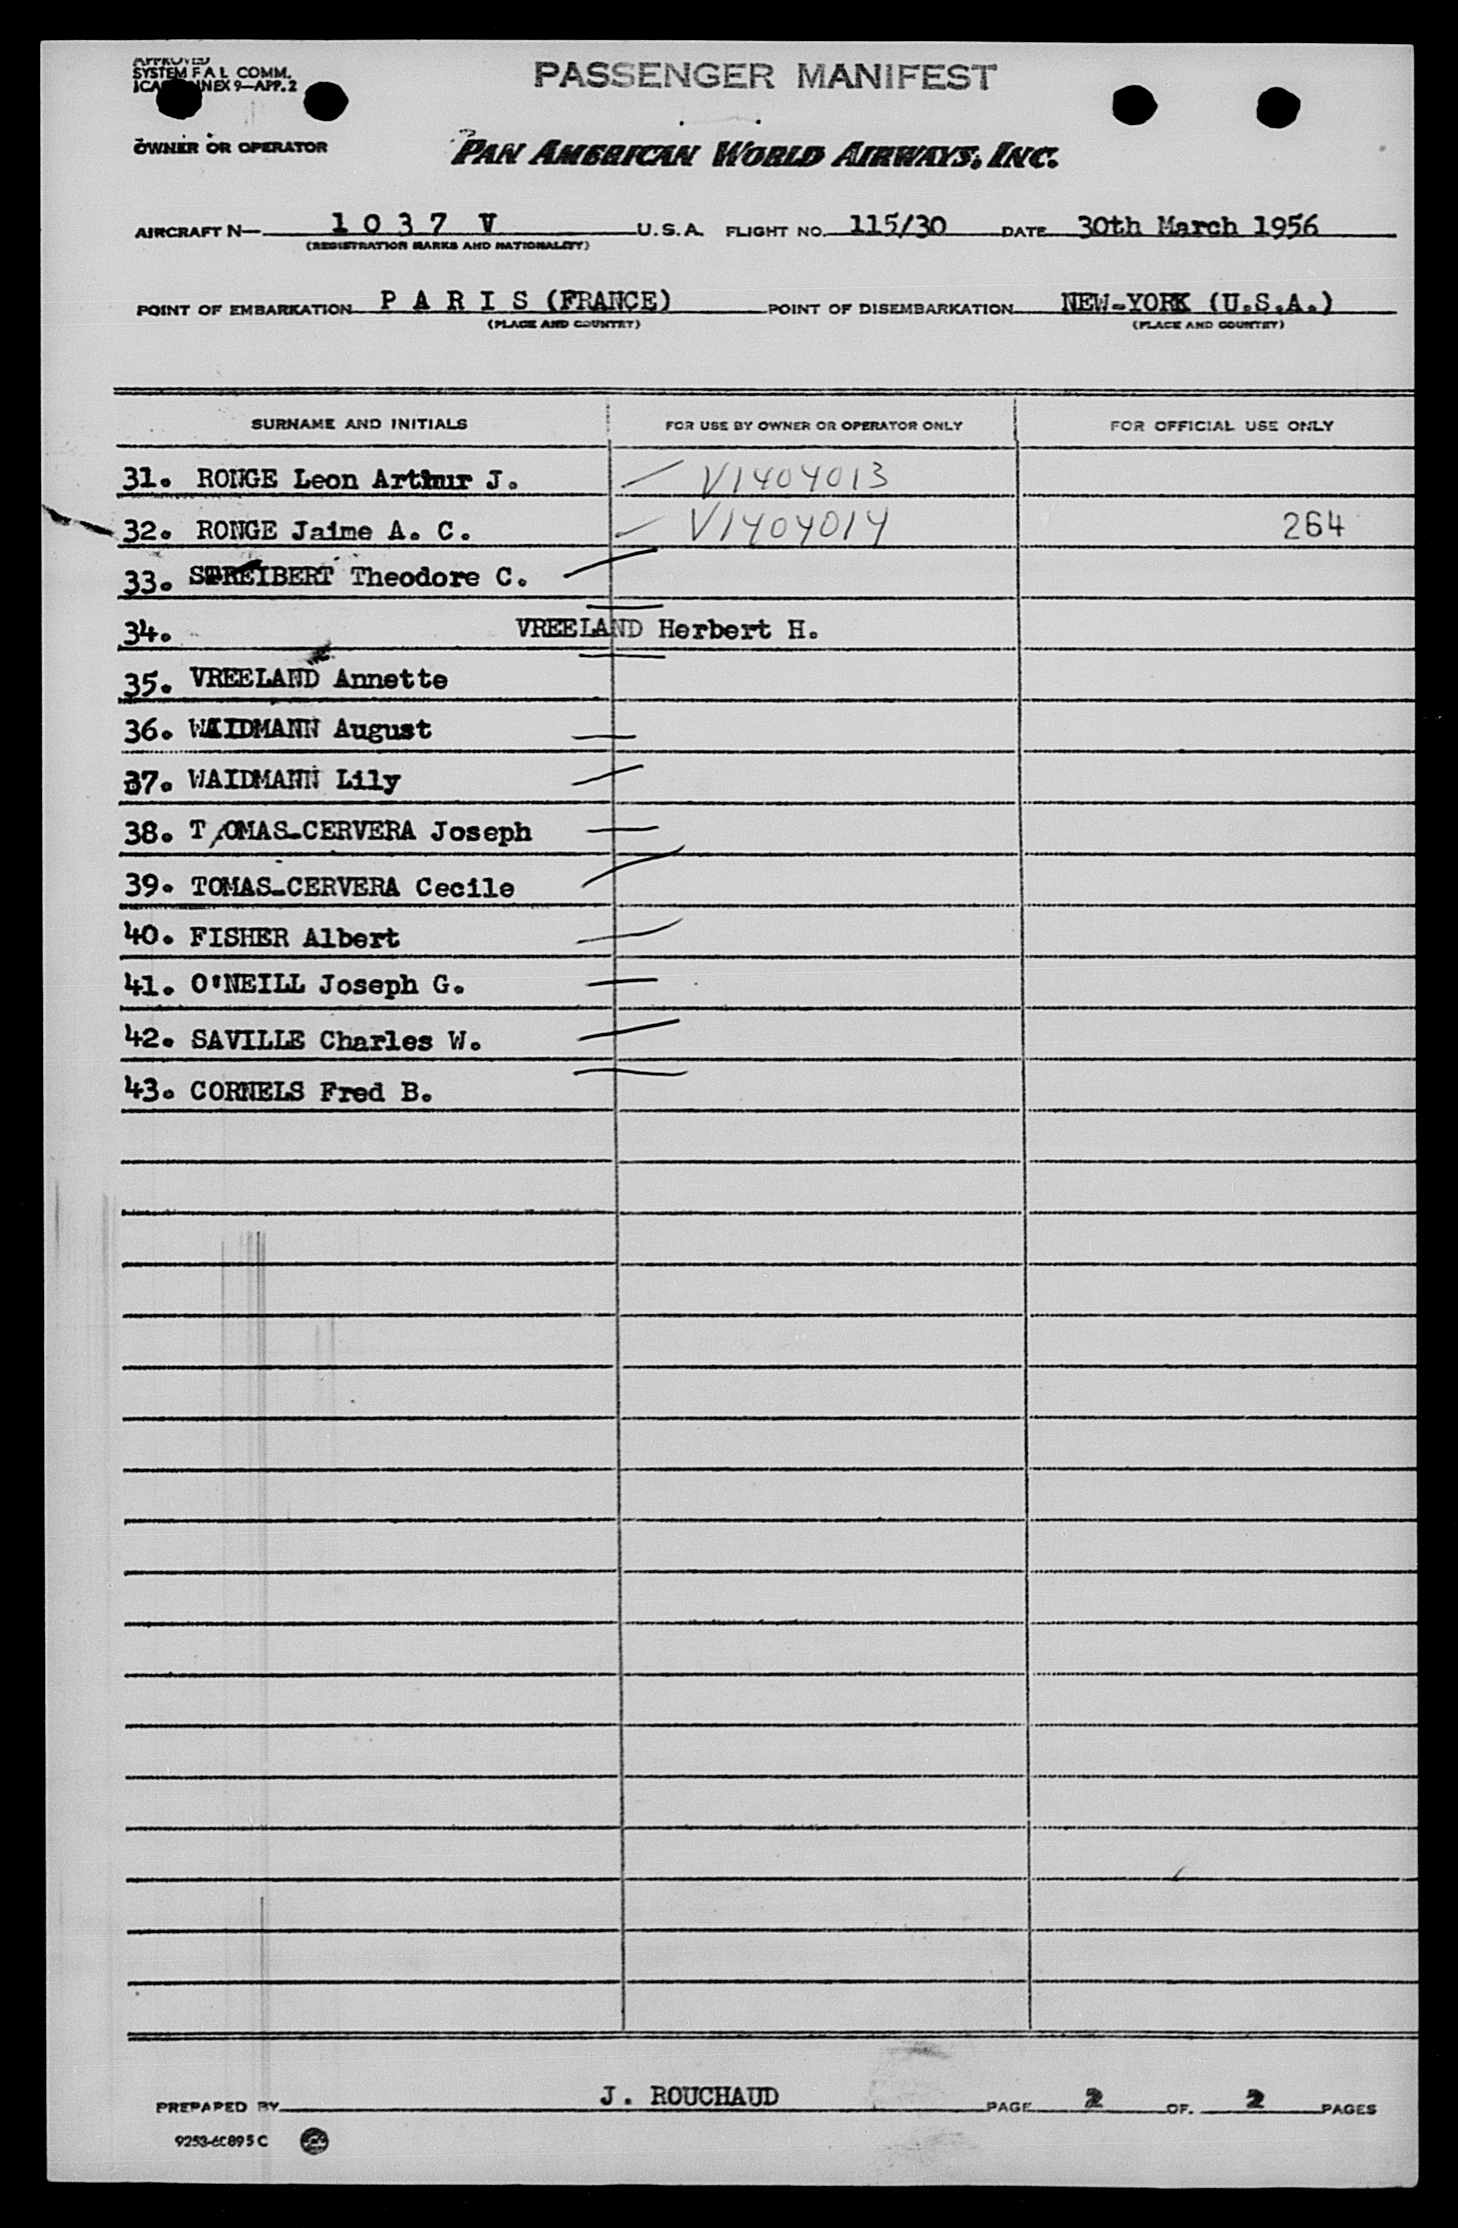 APPROVED
SYSTEM F A L COMM.
ICA NNEX 9—APP. 2
PASSENGER MANIFEST
OWNER OR OPERATOR
PAN AMERICAN WORLD AIRWAYS, INC.
AIRCRAFT N— 1 0 3 7 V U.S.A. FLIGHT NO. 115/30 DATE 30th March 1956
(REGISTRATION MARKS AND NATIONALITY)
POINT OF EMBARKATION P A R I S (FRANCE) POINT OF DISEMBARKATION NEW-YORK (U.S.A.)
(PLACE AND COUNTRY) (PLACE AND COUNTRY)
SURNAME AND INITIALS FOR USE BY OWNER OR OPERATOR ONLY FOR OFFICIAL USE ONLY
31. RONGE Leon Arthur J. V1404013
32. RONGE Jaime A. C. V1404014 264
33. STREIBERT Theodore C.
34. VREELAND Herbert H.
35. VREELAND Annette
36. WAIDMANN August
37. WAIDMANN Lily
38. T/OMAS-CERVERA Joseph
39. TOMAS-CERVERA Cecile
40. FISHER Albert
41. O'NEILL Joseph G.
42. SAVILLE Charles W.
43. CORNELS Fred B.
PREPARED BY J. ROUCHAUD PAGE 2 OF. 2 PAGES
9253-6C895C